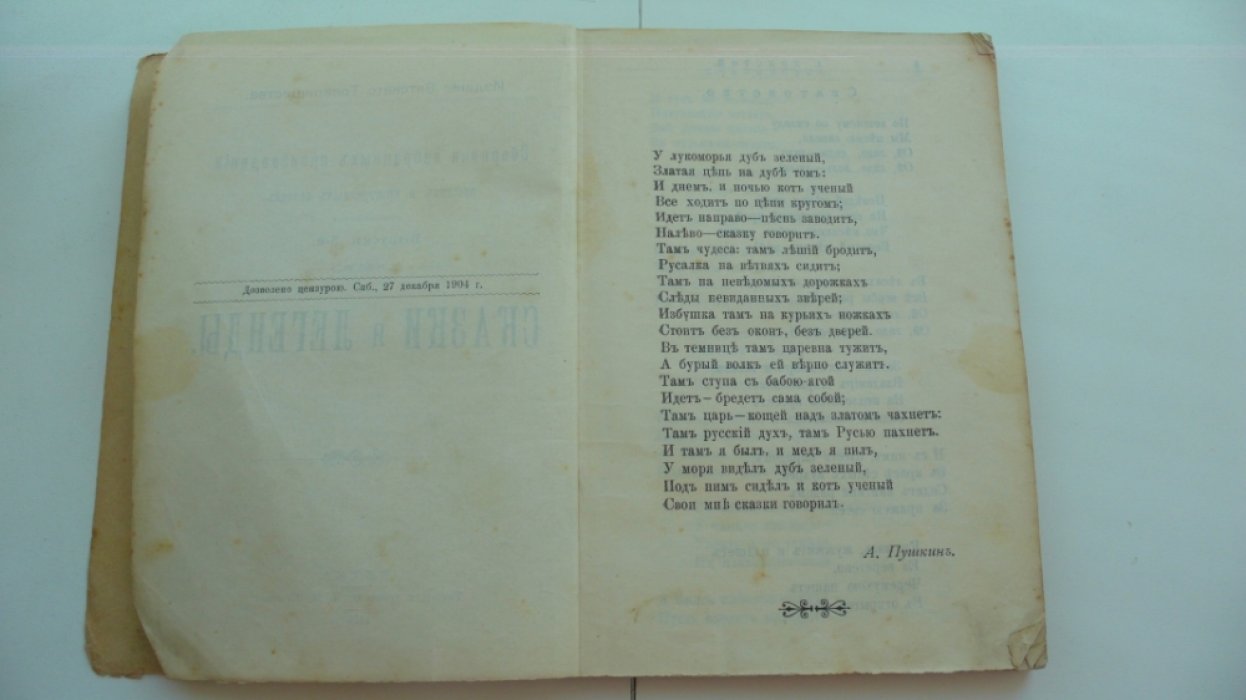 Дозволено цензурою. Спб., 27 декабря 1904 г.
У лукоморья дубъ зеленый,
Златая цѣпь на дубѣ томъ:
И днемъ, и ночью котъ ученый
Все ходитъ по цѣпи кругомъ;
Идетъ направо—пѣснь заводитъ,
Налѣво—сказку говоритъ.
Тамъ чудеса: тамъ лѣшій бродитъ,
Русалка на вѣтвяхъ сидитъ;
Тамъ на невѣдомыхъ дорожкахъ
Слѣды невиданныхъ звѣрей;
Избушка тамъ на курьихъ ножкахъ
Стоитъ безъ оконъ, безъ дверей.
Въ темницѣ тамъ царевна тужитъ,
А бурый волкъ ей вѣрно служитъ.
Тамъ ступа съ бабою-ягой
Идетъ—бредетъ сама собой;
Тамъ царь—кощей надъ златомъ чахнетъ;
Тамъ русскій духъ, тамъ Русью пахнетъ.
И тамъ я былъ, и медъ я пилъ,
У моря видѣлъ дубъ зеленый,
Подъ нимъ сидѣлъ и котъ ученый
Свои мнѣ сказки говорилъ.
А. Пушкинъ.
СКАЗКИ и ЛЕГЕНДЫ.